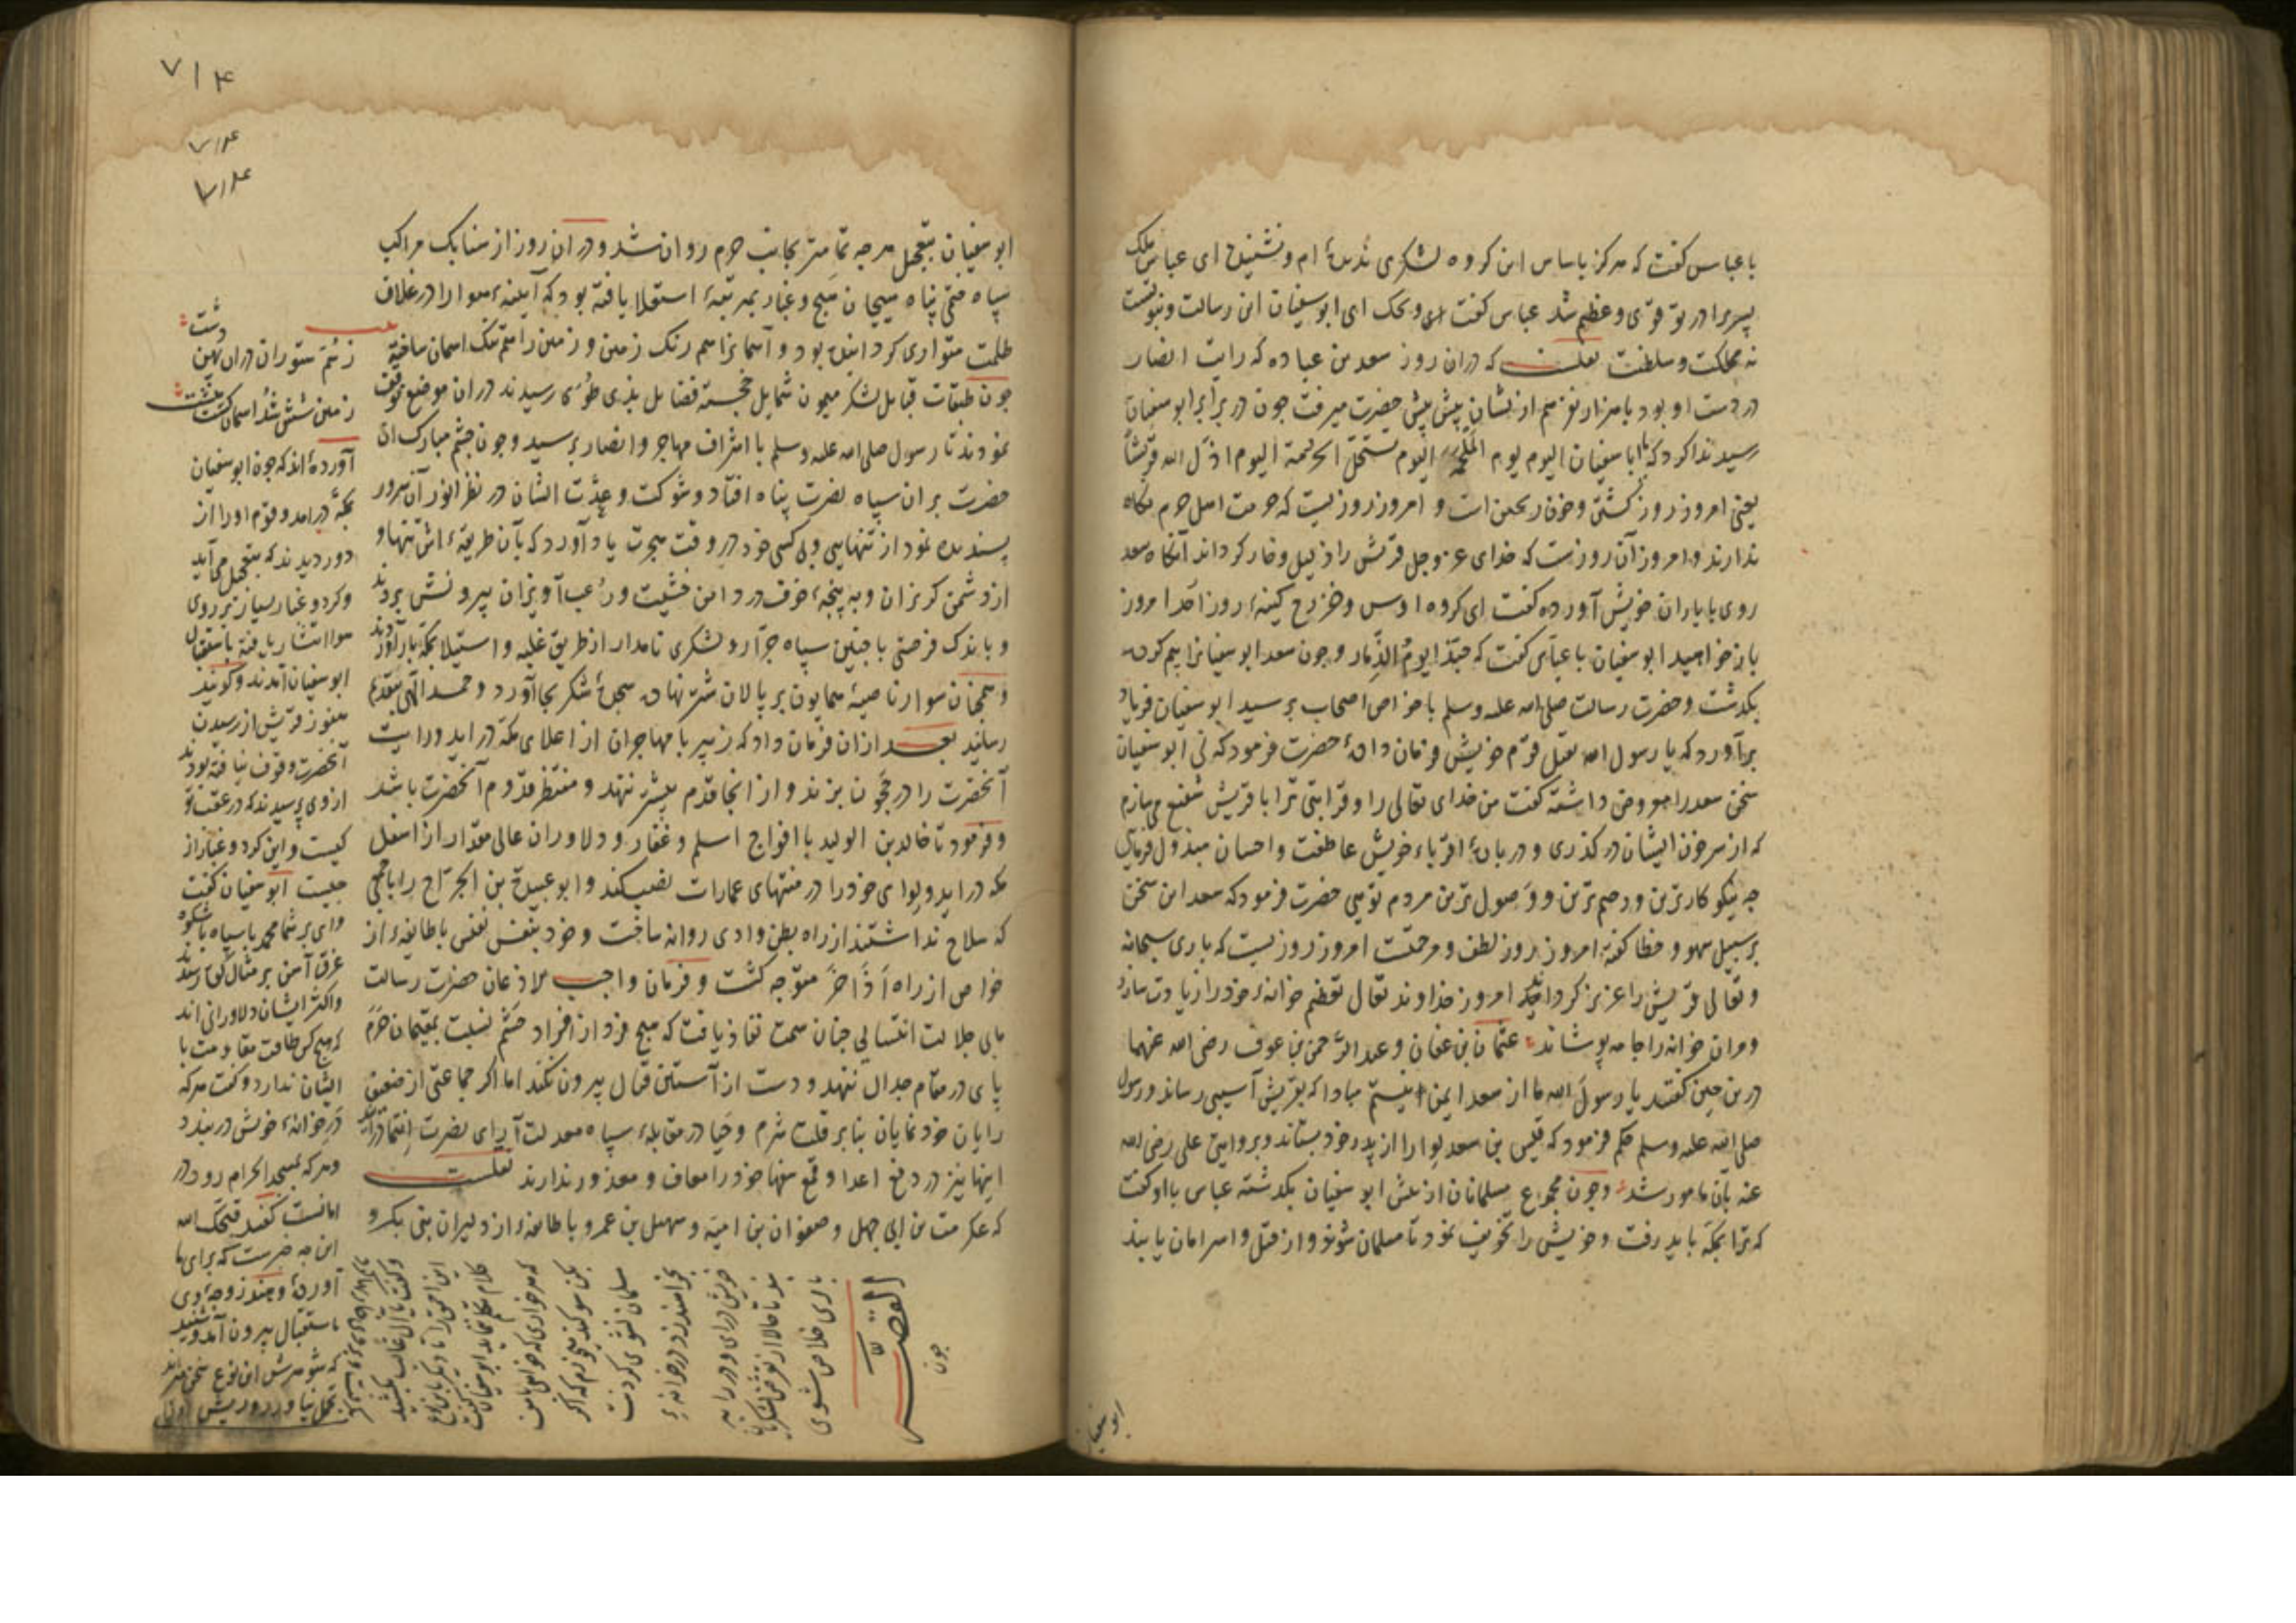 با عباس گفت که هرگز باساس این کروه لشکری ندیدهٔ ام و نشنیده ای عباس ملک
پسر برادر تو قوی و عظیم شد عباس گفت ویحک ای ابو سفیان این رسالت و نبوتست
نه مملکت و سلطنت نقلست که دران روز سعد بن عباده که رایت انصار
در دست او بود با هزار نفر هم ازیشان پیش پیش حضرت میرفت چون در برابر ابو سفیان
رسید ندا کرد که یا ابا سفیان الیوم یوم الملحمة الیوم تستحل الحرمة الیوم اذل الله قریشا
یعنی امروز روز کشتن و خون ریختن است و امروز روزیست که حرمت اهل حرم نکاه
ندارند و امروز آن روزست که خدای عز و جل قریش را ذلیل و خار کرداند آنکاه سعد
روی با یاران خویش آورده گفت ای کروه اوس و خزرج کینهٔ روز احد امروز
باز خواهید ابو سفیان با عباس گفت که حبذا یوم الذمار و چون سعد ابو سفیانرا بیم کرده
بگذشت و حضرت رسالت صلی الله علیه وسلم با خواص اصحاب برسید ابو سفیان فریاد
برآورد که یا رسول الله بقتل قوم خویش فرمان دادهٔ حضرت فرمود که نی ابو سفیان
سخن سعد را معروض داشته گفت من خدای تعالی را و قرابتی ترا با قریش شفیع می سازم
که از سر خون ایشان در کذری و دربارهٔ اقرباء خویش عاطفت و احسان مبذول فرمائی
چه نیکو کارترین و رحیم ترین و وصول ترین مردم تویی حضرت فرمود که سعد این سخن
بر سبیل سهو و خطا گفته امروز روز لطف و مرحمتست امروز روزیست که باری سبحانه
و تعالی قریش را عزیز کرداند امروز خداوند تعال تعظیم خانهٔ خود را زیادت سازد
و مران خانه را جامه پوشاند عثمان بن عفان و عبد الرحمن بن عوف رضی الله عنهما
درین حین گفتند یا رسول الله ما از سعد ایمن نیستم مبادا که بقریش آسیبی رساند و رسول
صلی الله علیه وسلم حکم فرمود که قیس بن سعد لوا را از پدر خود بستاند و بروایتی علی رضی الله
عنه بآن مامور شد و چون مجموع مسلمانان از پیش ابو سفیان بگذشته عباس با او گفت
که ترا بمکه باید رفت و خویش را تخویف نمود تا مسلمان شوند و از قتل و اسر امان یابند
ابو سفیان
٧١۴
٧١۴
٧١۴
ابو سفیان بتعجیل هرچه تمامتر بجانب حرم روان شد و دران روز از سنابک مراکب
سپاه حق پناه هیجان هیج و غبار بمرتبهٔ استعلا یافته بود که آیینهٔ هوا را در غلاف
ظلمت متواری کردانیده بود و آسمانرا هم رنک زمین و زمین را هم تک اسمان ساخته
چون طبقات قبایل لشکر میمون شمایل خجسته فضایل بذی طوی رسیدند دران موضع توقف
نمودند تا رسول صلی الله علیه وسلم با اشراف مهاجر و انصار برسید و چون چشم مبارک ان
حضرت بران سپاه نصرت پناه افتاد و شوکت و عدّت ایشان در نظر انور آن سرور
پسندیده نمود از تنهایی و بی کسی خود در وقت هجرت یاد آورد که بآن طریقهٔ اش تنها و
از دشمن کریزان و به پنجهٔ خوف در دامن خشیت و رعب آویزان بیرونش بردند
و باندک فرصتی با چنین سپاه جرّار و لشکری نامدار از طریق غلبه و استیلا بمکه باز آوردند
و همچنان سوار ناصیهٔ همایون بر پالان شتر نهاده سجدهٔ شکر بجا آورد و حمد الهی بتقدیم
رسانید بعد ازان فرمان داد که زبیر با مهاجران از اعلای مکه در اید و رایت
آنحضرت را در حجون بزند و از انجا قدم پیشتر ننهد و منتظر قدوم آنحضرت باشد
و فرمود تا خالد بن الولید با افواج اسلم و غفار و دلاوران عالی مقدار از اسفل
مکه در اید و لوای خود را در منتهای عمارات نصب کند و ابو عبیدة بن الجراح را با جمعی
که سلاح نداشتند از راه بطن وادی روانه ساخت و خود بنفس نفیس با طایفهٔ از
خواص از راه اذاخر متوجه کشت و فرمان واجب الاذعان حضرت رسالت
مابی جلالت انتسابی چنان سمت نفاذ یافت که هیچ فرد از افراد حشم نسبت بمقیمان حرم
پای در مقام جدال ننهد و دست از آستین قتال بیرون نکند اما اکر جماعتی از ضعیف
رایان خود نمایان بنابر قلت شرم و حیا در مقابلهٔ سپاه معدلت آرای نصرت انتما درآیند
اینها نیز در دفع اعدا و قمع سفها خود را معاف و معذور ندارند نقلست
که عکرمة بن ابی جهل و صفوان بن امیه و سهیل بن عمرو با طایفهٔ از دلیران بنی بکر و
ز سم ستوران دران پهن دشت
زمین شش شد و اسمان کشت هشت
آورده اند که چون ابو سفیان
بمکه درامد و قوم او را از
دور دیدند که بتعجیل می آید
و کرد و غبار بسیار بر روی
هوا انتشار یافته باستقبال
ابو سفیان آمدند و گویند
هنوز قریش از رسیدن
آنحضرت وقوف نیافته بودند
از وی پرسیدند که در عقب تو
کیست و این کرد و غبار از
چیست ابو سفیان گفت
وای بر شما محمد با سپاه باشکوه
غرق آهن بر مثال کوه رسید
و اکثر ایشان دلاورانی اند
که هیچ کس طاقت مقاومت با
ایشان ندارد و گفت هر که
در خانهٔ خویش در بندد
و هر که بمسجد الحرام رود در
امانست گفتند قبحک الله
این چه خبرست که برای ما
آوردهٔ و هند زوجهٔ وی
باستقبال بیرون آمد و شنید
که شوهرش این نوع سخن میراند
تحمل نیاورد و ریش او
و گفت یا آل غالب بکشید
این احمق را تا دیگر باین نوع
کلام تکلم ننماید ابو سفیان گفت
که هر خواری که خواهی با من
بکن سوکند میخورم که اکر
مسلمان نشوی کردنت
بخواهند زد در خانهٔ
خویش درای و در را به
بند تا حالا از تعرض لشکریان
باری خلاص شوی
القصه
چون